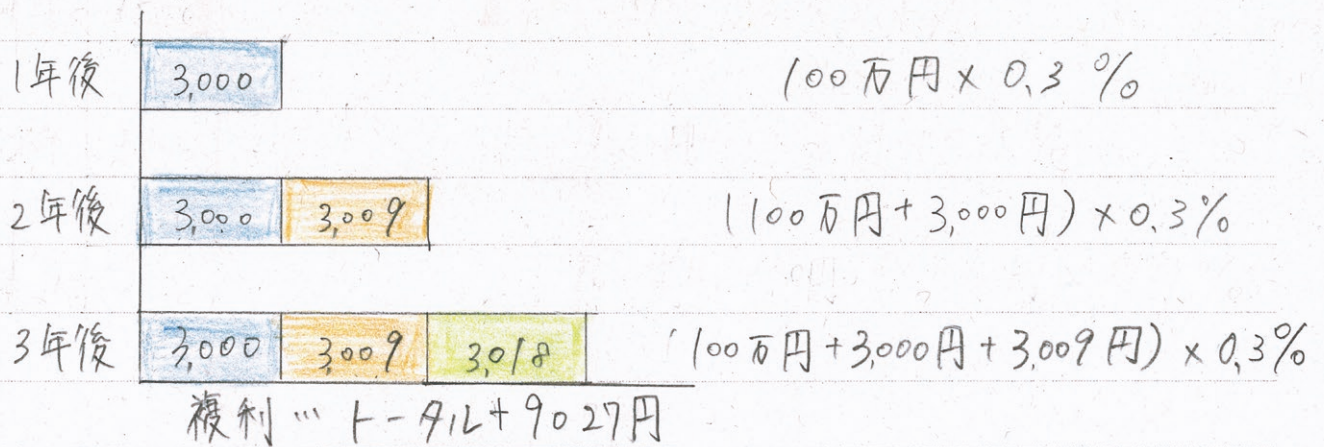 1年後 3,000 100万円 × 0.3%
2年後 3,000 3,009 (100万円+3,000円) × 0.3%
3年後 3,000 3,009 3,018 (100万円+3,000円+3,009円) × 0.3%
複利…トータル+9027円